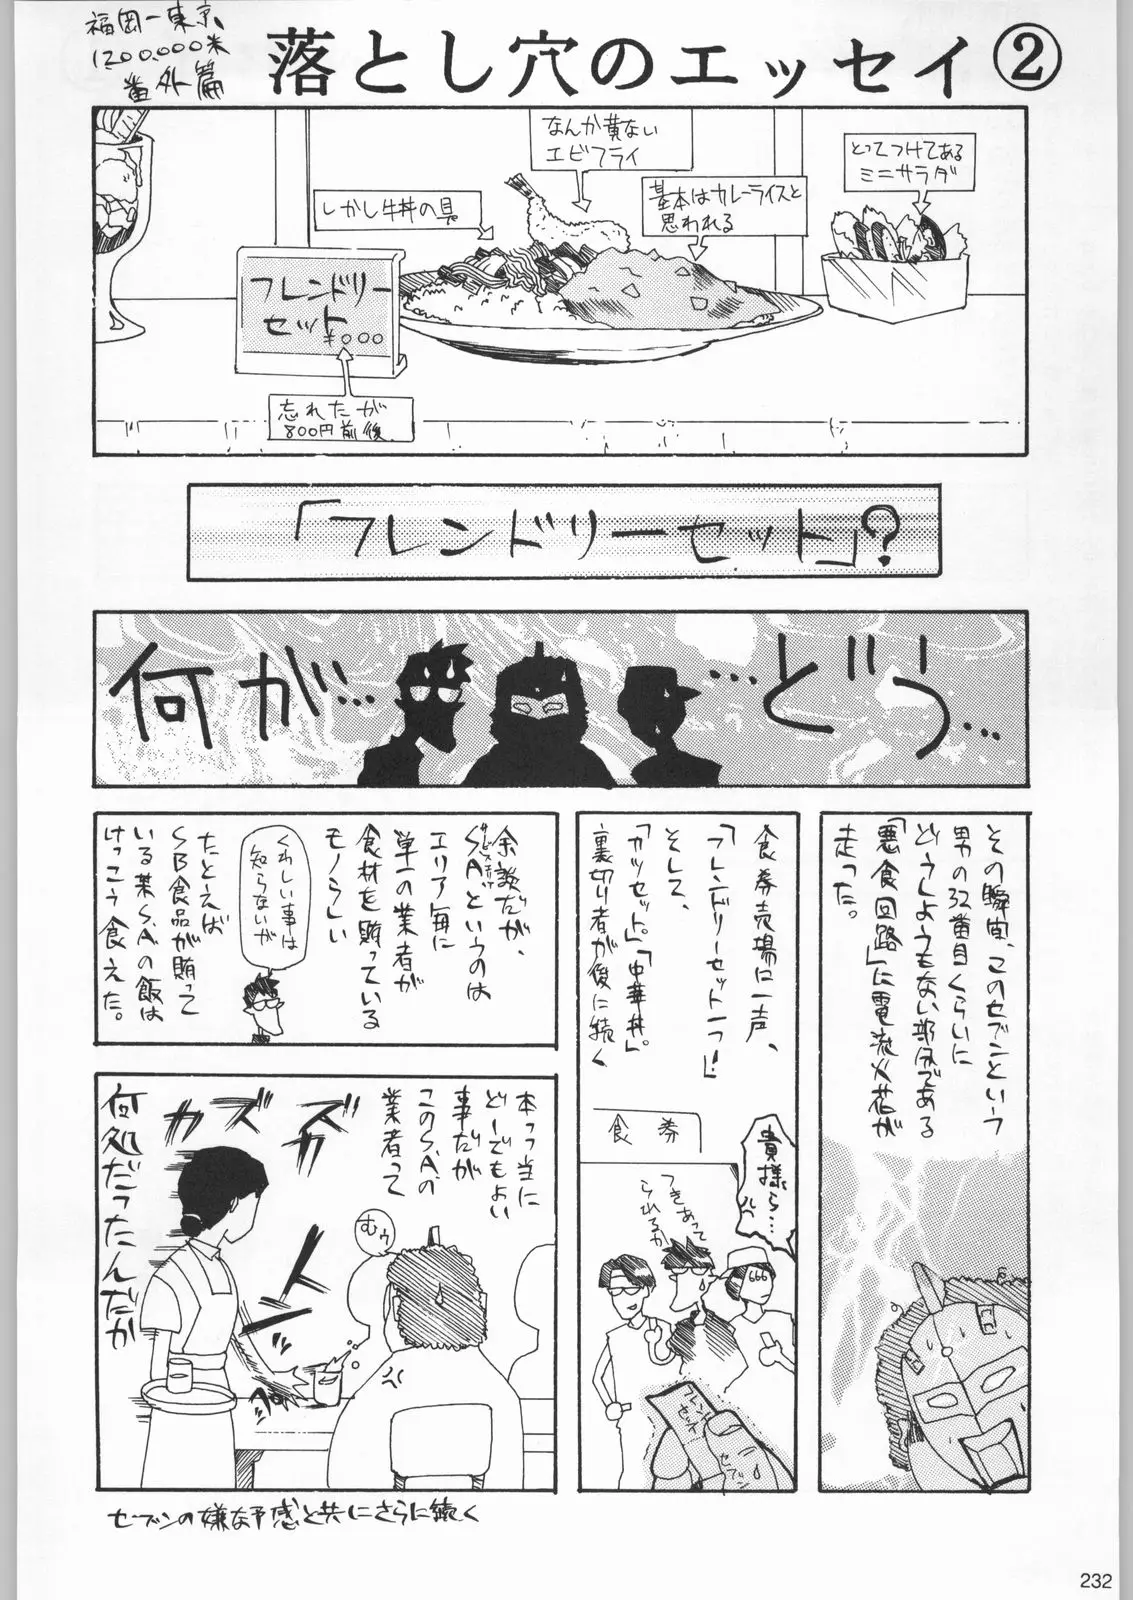 福岡ー東京
1200,000米
番外篇
落とし穴のエッセイ②
なんか貧ない
エビフライ
とってつけてある
ミニサラダ
しかし牛丼の具
基本はカレーライスと
思われる
フレンドリー
セット
¥○○○
忘れたが
800円前後
「フレンドリーセット」?
何が…
…どう…
その瞬間、このセブンという
男の32番目くらいに
どうしようもない部分である
「悪食回路」に電流火花が
走った。
食券売場に一声、
「フレンドリーセット一つ!」
そして、
「カツセット。」「中華丼。」
裏切り者が後に続く
食券
貴様ら…
つきあって
られるか
666
フレンドリー
セット
セブン
余談だが、
S.A.というのは
エリア毎に
単一の業者が
食材を賄っている
モノらしい
くわしい事は
知らないが
たとえば
SB食品が賄って
いる某S.A.の飯は
けっこう食えた。
本っ当に
どーでもよい
事だが
このS.A.の
業者って
むぅ
ズズズカカ
何処だったんだか
セブンの嫌な予感と共にさらに続く
232